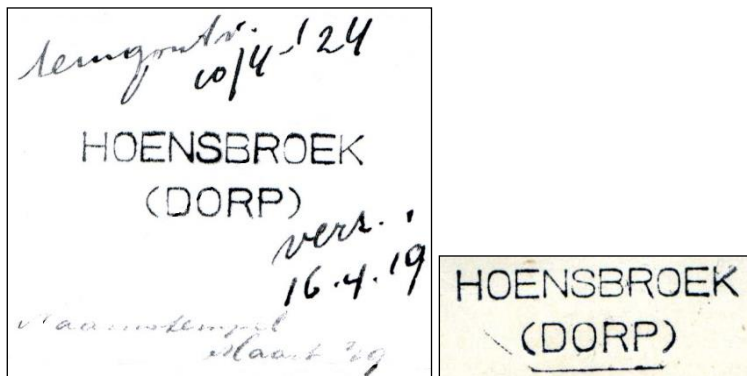 terugontv.
10/4-'24
HOENSBROEK
(DORP)
verz.
16.4.'19
Naamstempel
Maart '19
HOENSBROEK
(DORP)